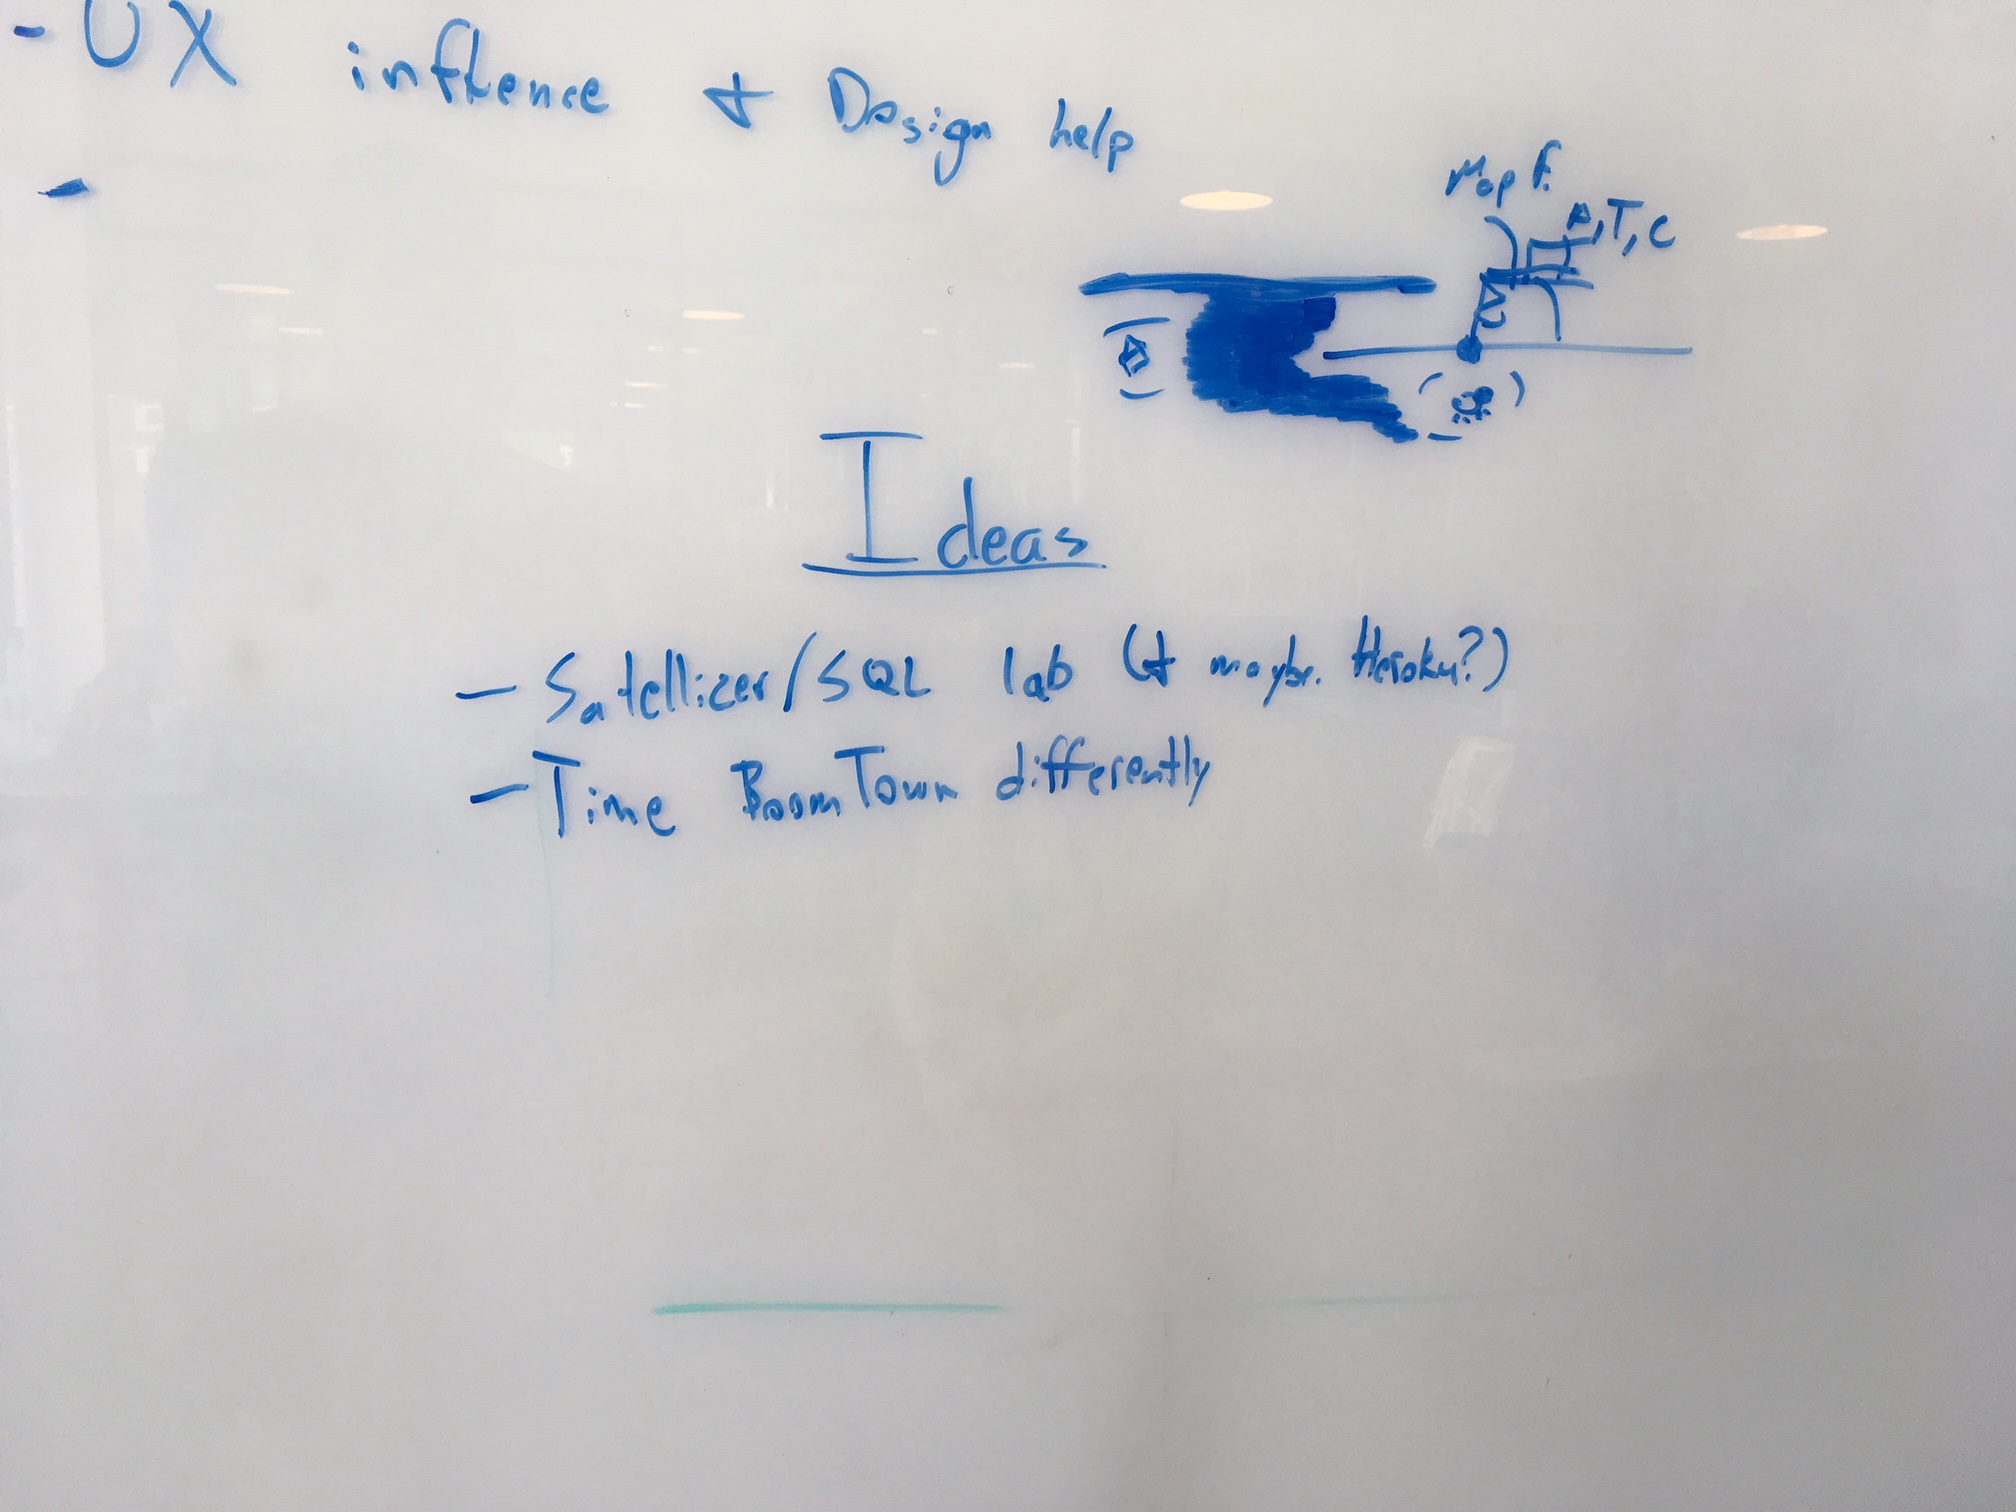 - UX influence + Design help
-
Map F.
A, T, C
Ideas
- Satellizer/SQL lab (+ maybe Heroku?)
- Time BoomTown differently